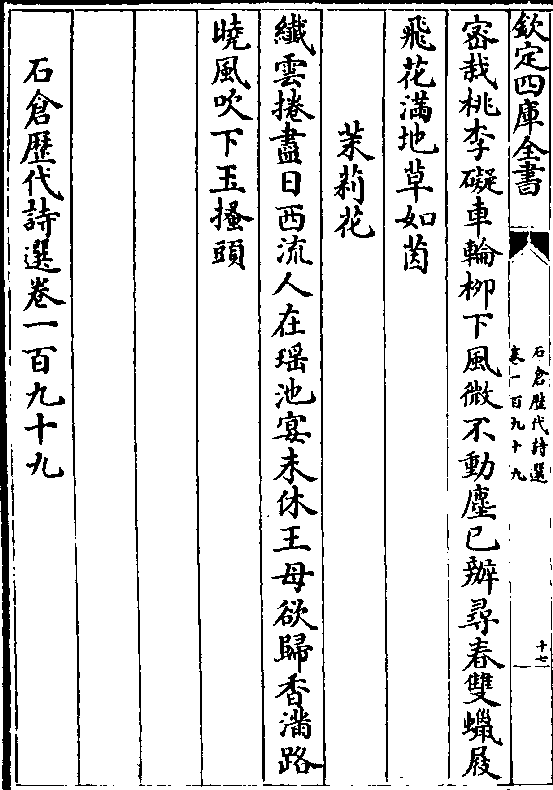 欽定四庫全書
石倉歴代詩選
卷一百九十九
十七
密栽桃李礙車輪栁下風微不動塵已辦尋春雙蠟屐
飛花滿地草如茵
茉莉花
纎雲捲盡日西流人在瑶池宴未休王母欲歸香滿路
曉風吹下玉搔頭
石倉歴代詩選卷一百九十九